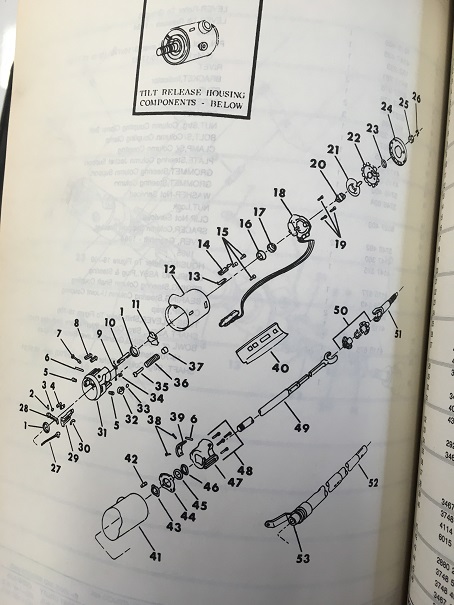 TILT RELEASE HOUSING
COMPONENTS - BELOW
26
25
24
23
22
21
20
19
18
17
16
15
14
13
12
11
1
10
9
8
7
6
5
4
3
2
28
1
27
29
30
31
5
32
33
34
35
36
37
38
39
6
40
41
42
43
44
45
46
47
48
49
50
51
52
53
3467
3748
4114
6015
2660
3748
3748
3467